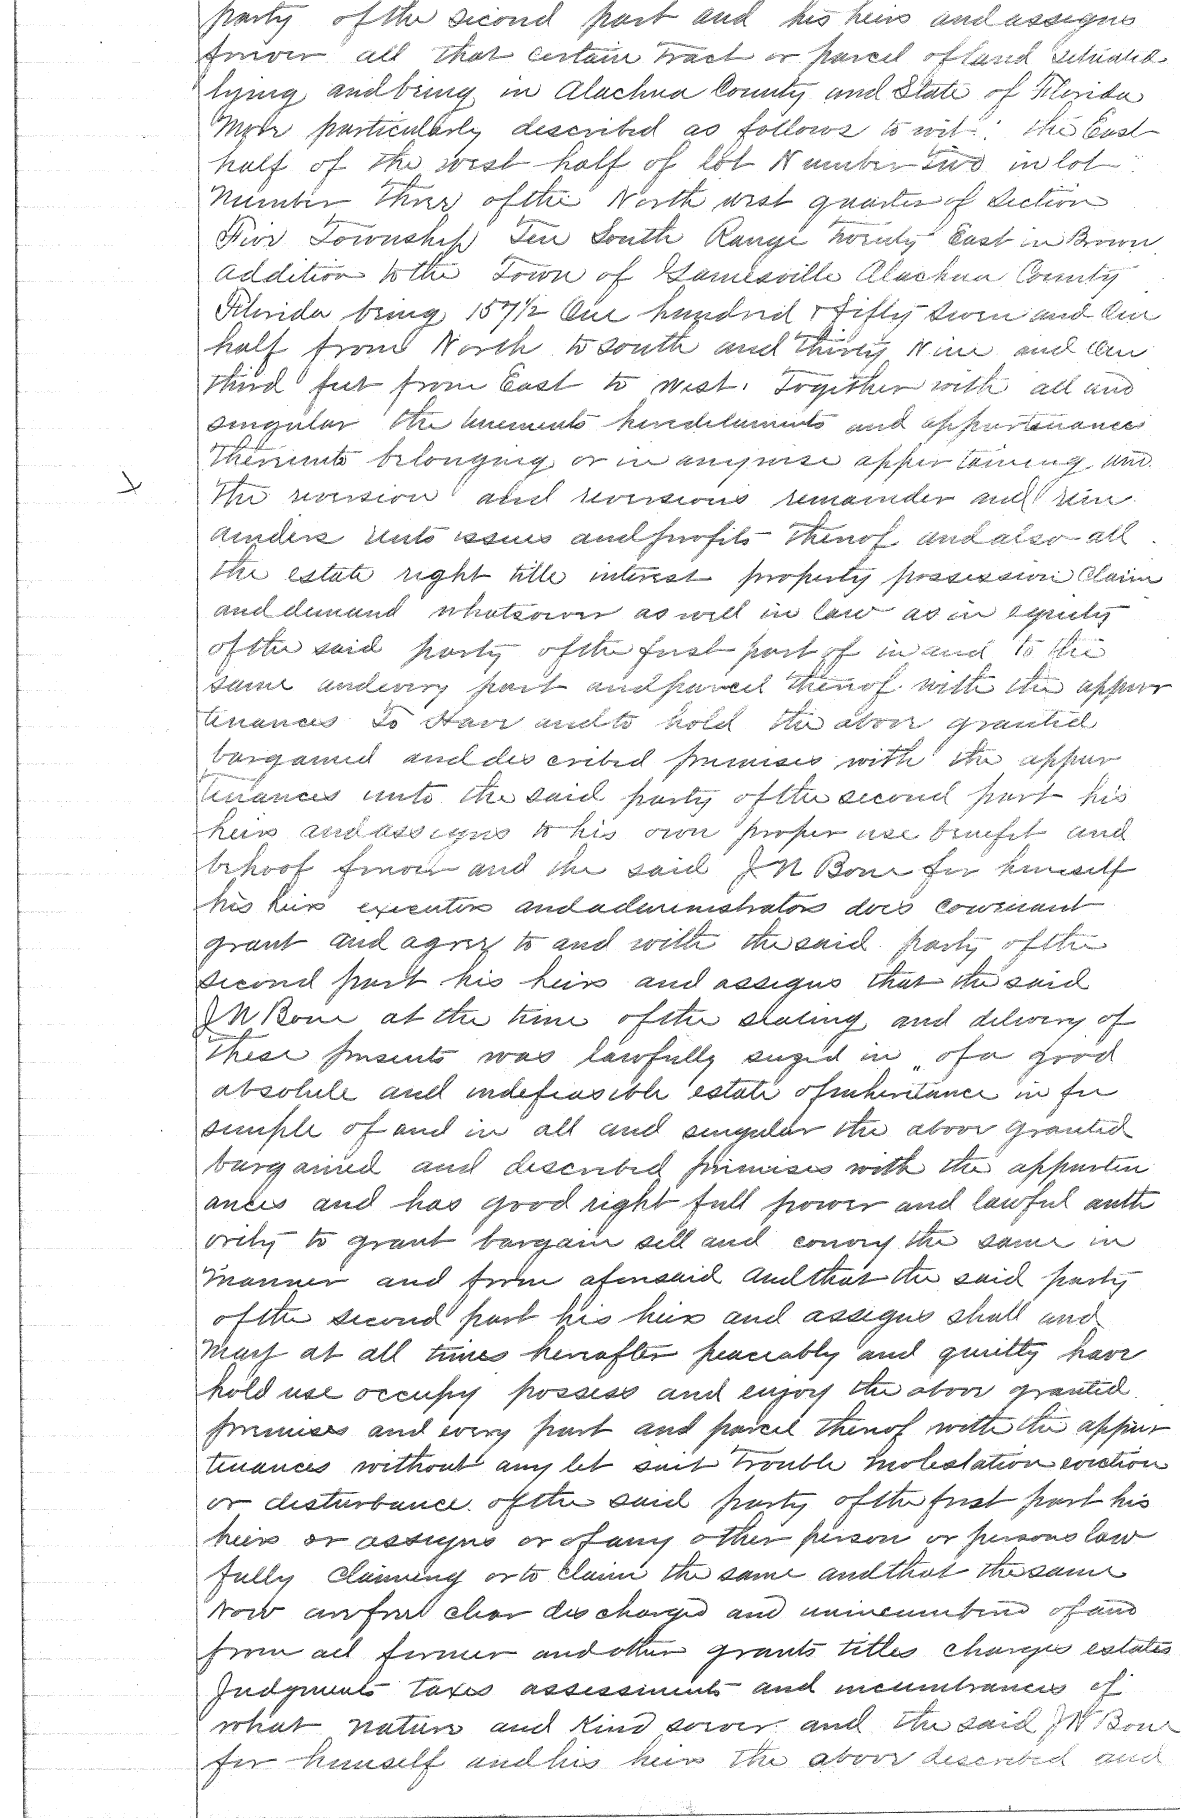 party of the second part and his heirs and assigns
forever all that certain tract or parcel of land situated
lying and being in Alachua County and State of Florida
More particularly described as follows to wit: the East
half of the west half of lot Number Two in lot
Number Three of the North west quarter of Section
Five Township Ten South Range Twenty East in Brown
addition to the Town of Gainesville Alachua County
Florida being 157½ One hundred & fifty seven and One
half from North to south and thirty Nine and One
third feet from East to West. Together with all and
singular the tenements hereditaments and appurtenances
thereunto belonging or in anywise appertaining and
the reversion and reversions remainder and rem
ainders rents issues and profits thereof and also all
the estate right title interest property possession Claim
and demand whatsoever as well in law as in equity
of the said party of the first part of in and to the
same and every part and parcel thereof with the appur
tenances To Have and to hold the above granted
bargained and described premises with the appur
tenances unto the said party of the second part his
heirs and assigns to his own proper use benefit and
behoof forever and the said J N Bone for himself
his heirs executors and administrators does covenant
grant and agree to and with the said party of the
second part his heirs and assigns that the said
J N Bone at the time of the sealing and delivery of
these presents was lawfully seized in of a good
absolute and indefeasible estate of inheritance in fee
simple of and in all and singular the above granted
bargained and described premises with the appurten
ances and has good right full power and lawful auth
ority to grant bargain sell and convey the same in
manner and form aforesaid and that the said party
of the second part his heirs and assigns shall and
May at all times hereafter peaceably and quietly have
hold use occupy possess and enjoy the above granted
premises and every part and parcel thereof with the appur
tenances without any let suit trouble molestation eviction
or disturbance of the said party of the first part his
heirs or assigns or of any other person or persons law
fully claiming or to claim the same and that the same
Now are free clear discharged and unincumbered of and
from all former and other grants titles charges estates
Judgments taxes assessments and incumbrances of
what nature and Kind soever and the said J N Bone
for himself and his heirs the above described and